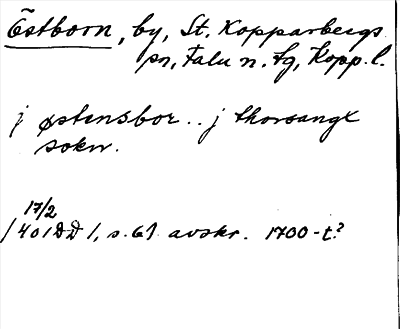 Östborn, by, St. Kopparbergs
sn, Falu n. tg, Kopp. l.
j østensbor .. j thorsangx
sokn.
17/2
/401 DD/, s. 61 avskr. 1700-t.?